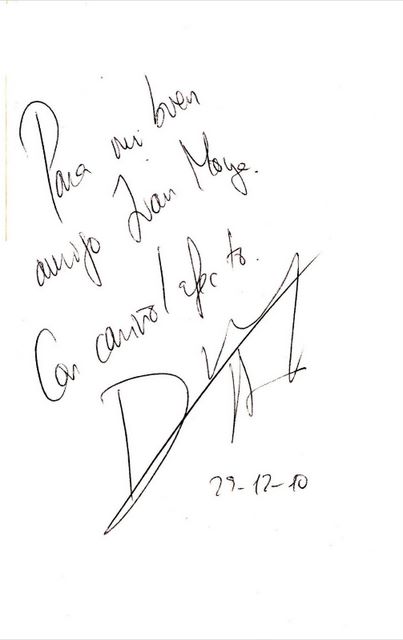 Para mi buen
amigo Iván Moya.
Con cariño / afecto.
29-12-10